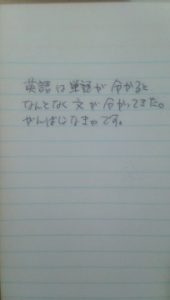 英語は単語が分かると
なんとなく文が分かってきた。
がんばしなきゃです。